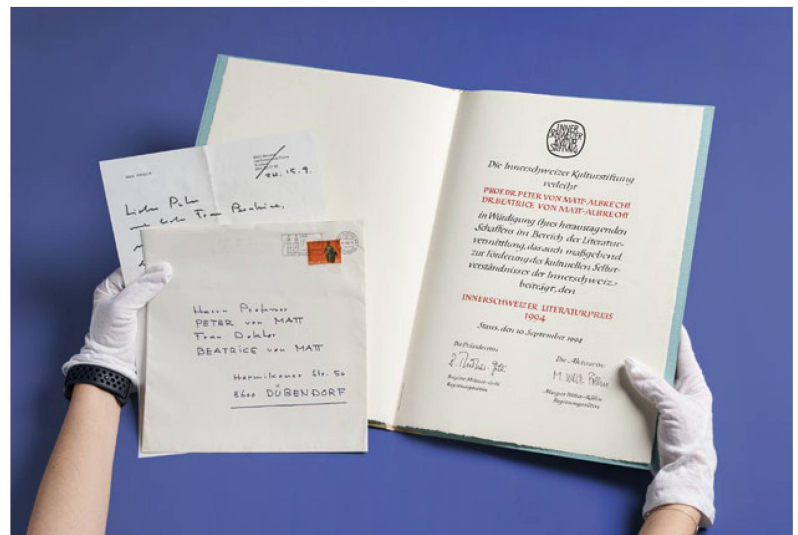 Lieber Peter
und liebe Frau Beatrice,
Herrn Professor
PETER von MATT
Frau Doktor
BEATRICE von MATT
Hermikoner Str. 50
8600 DÜBENDORF
INNER
SCHWEIZER
KULTUR
STIFTUNG
Die Innerschweizer Kulturstiftung
verleiht
PROF. DR. PETER VON MATT-ALBRECHT
DR. BEATRICE VON MATT-ALBRECHT
in Würdigung ihres herausragenden
Schaffens im Bereich der Literatur-
vermittlung, das auch maßgebend
zur Förderung des kulturellen Selbst-
verständnisses der Innerschweiz
beiträgt, den
INNERSCHWEIZER LITERATURPREIS
1994
Stans, den 10. September 1994
Die Präsidentin:
Regierungsrätin
Die Aktuarin:
Regierungsrätin